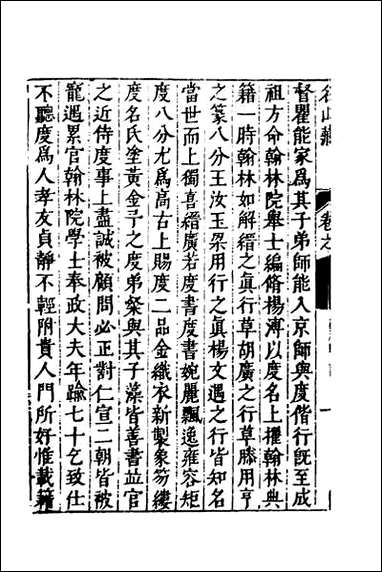 名山藏 卷之
督瞿能家為其子弟師能入京師與度偕行既至成
祖方命翰林院舉士編脩楊溥以度名上擢翰林典
籍一時翰林如解縉之真行草胡廣之行草滕用亨
之篆八分王汝玉梁用行之真楊文遇之行皆知名
當世而上獨喜縉廣若度書度書婉麗飄逸雍容矩
度八分尤為高古上賜度二品金織衣新製象笏縷
度名氏塗黃金予之度弟粲與其子藻皆善書並官
之近侍度事上盡誠被顧問必正對仁宣二朝皆被
寵遇累官翰林院學士奉政大夫年踰七十乞致仕
不聽度為人孝友貞靜不輕附貴人門所好惟載籍